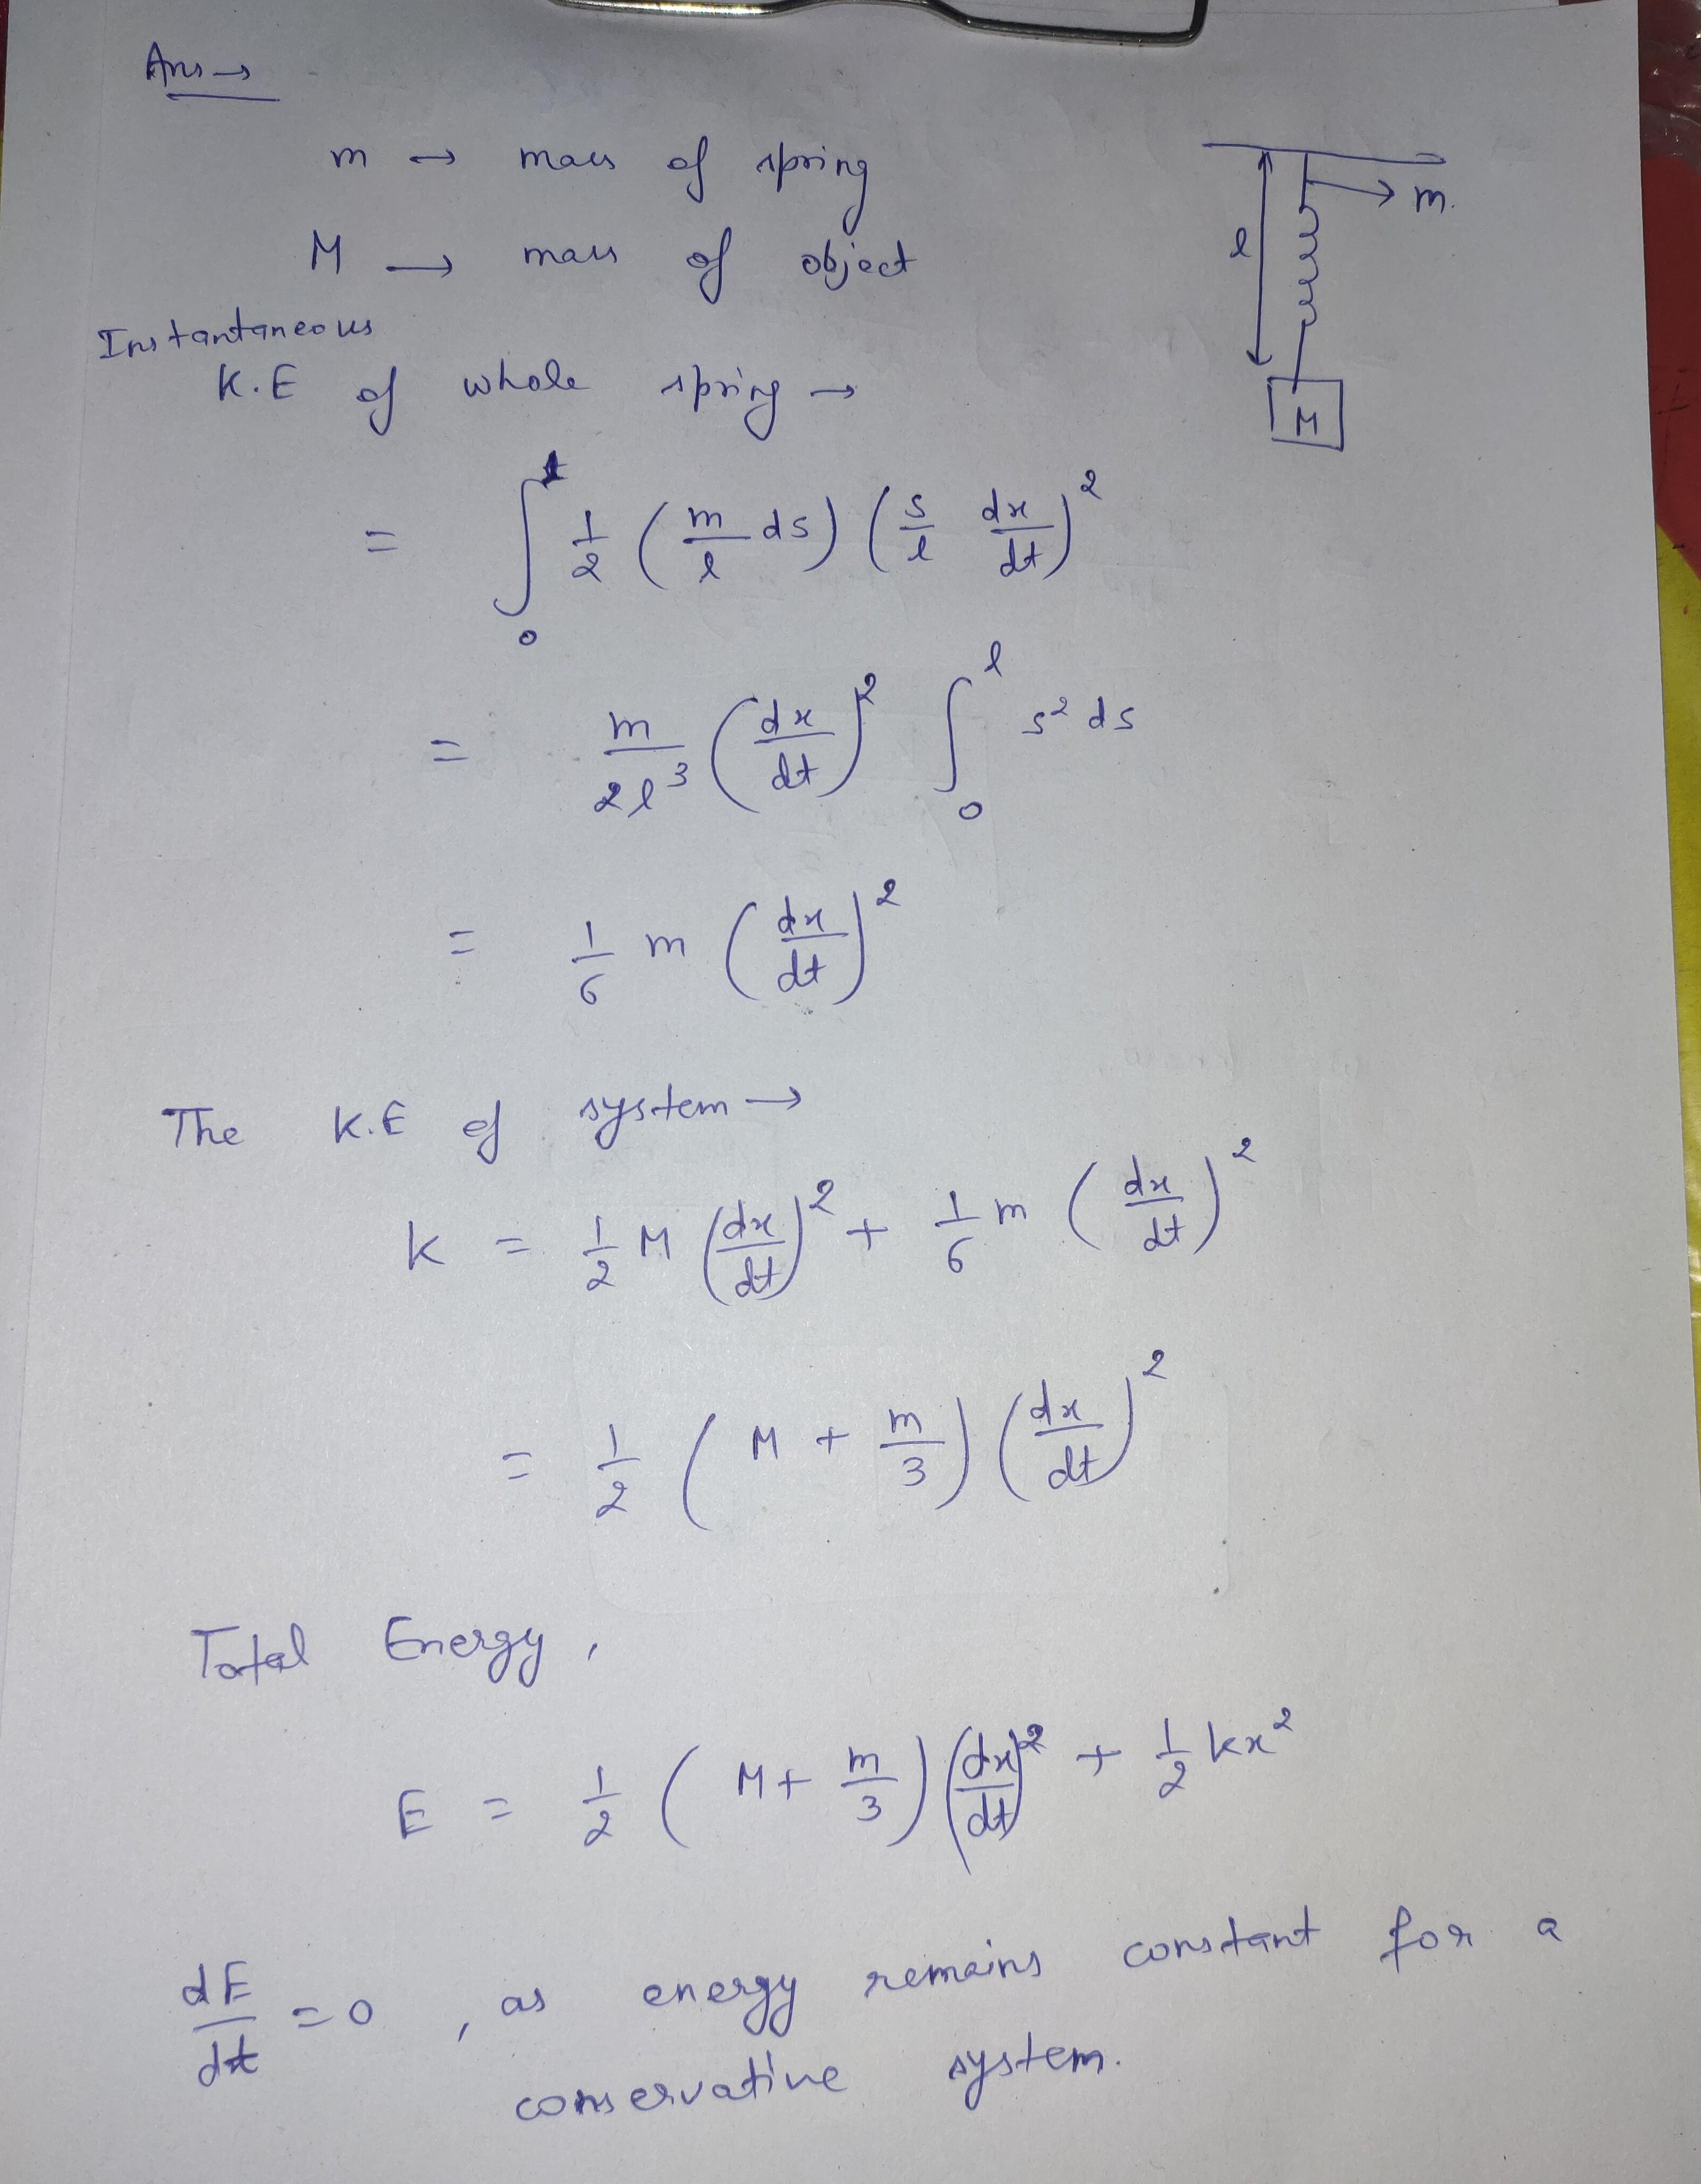 Ans →
m → mass of spring
M → mass of object
l
m.
M
Instantaneous
K.E of whole spring →
= ∫₀ˡ 1/2 (m/l ds) (s/l dx/dt)²
= m/2l³ (dx/dt)² ∫₀ˡ s² ds
= 1/6 m (dx/dt)²
The K.E of system →
K = 1/2 M (dx/dt)² + 1/6 m (dx/dt)²
= 1/2 (M + m/3) (dx/dt)²
Total Energy,
E = 1/2 (M + m/3) (dx/dt)² + 1/2 kx²
dE/dt = 0, as energy remains constant for a
conservative system.